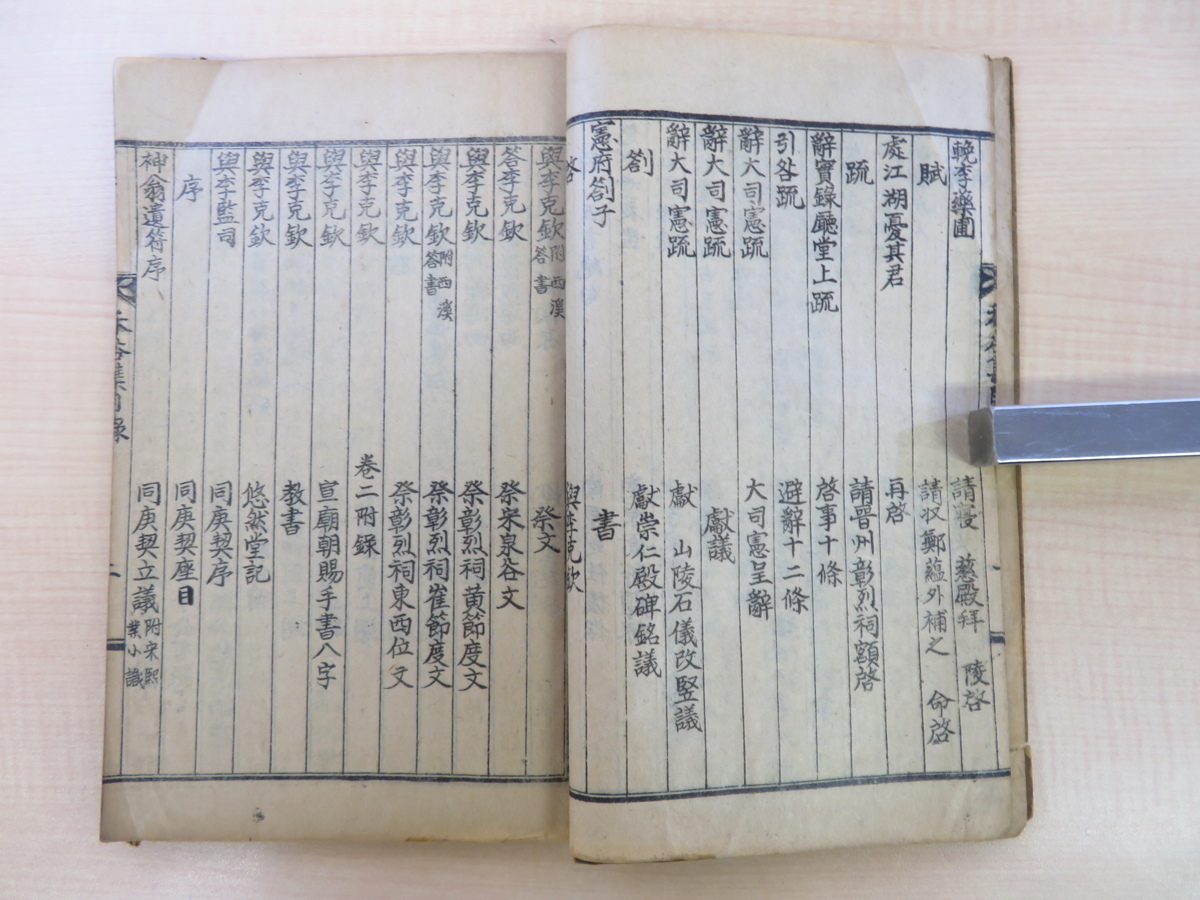 輓李樂圃
賦
處江湖憂其君
疏
辭實錄廳堂上疏
引咎疏
辭大司憲疏
辭大司憲疏
辭大司憲疏
箚
憲府箚子
啓
請寢 慈殿拜 陵啓
請収鄭蘊外補之 命啓
再啓
請晉州彰烈祠額啓
啓事十條
避辭十二條
大司憲呈辭
獻議
獻 山陵石儀改竪議
獻崇仁殿碑銘議
書
與李克欽
與李克欽附西溪答書
答李克欽
與李克欽
與李克欽附西溪答書
與李克欽
與李克欽
與李克欽
與李克欽
與李克欽
與李監司
序
神翁遺符序
祭文
祭宋泉谷文
祭彰烈祠黄節度文
祭彰烈祠崔節度文
祭彰烈祠東西位文
卷二附錄
宣廟朝賜手書八字
教書
悠然堂記
同庚契序
同庚契座目
同庚契立議附宋熙業小識
谷集目錄